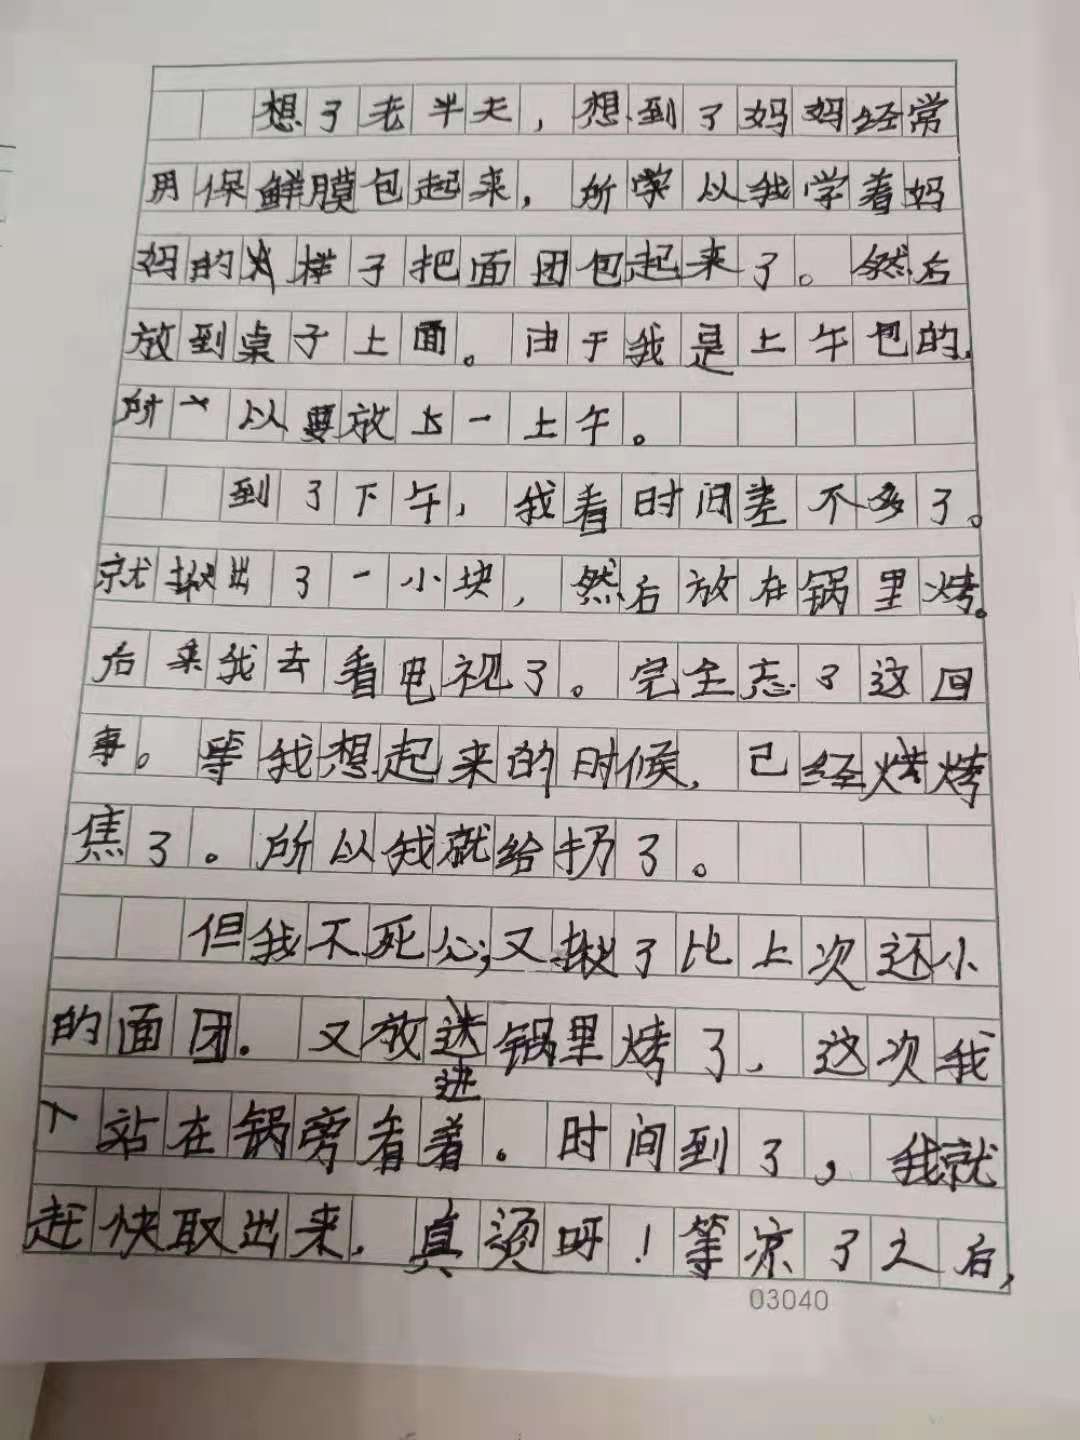 想了老半天，想到了妈妈经常
用保鲜膜包起来，所以我学着妈
妈的样子把面团包起来了。然后
放到桌子上面。由于我是上午包的，
所以要放上一上午。
到了下午，我看时间差不多了。
就揪出了一小块，然后放在锅里烤。
后来我去看电视了。完全忘了这回
事。等我想起来的时候，已经烤
焦了。所以我就给扔了。
但我不死心；又揪了比上次还小
的面团．又放进锅里烤了，这次我
站在锅旁看着。时间到了，我就
赶快取出来，真烫呀！等凉了之后，
03040